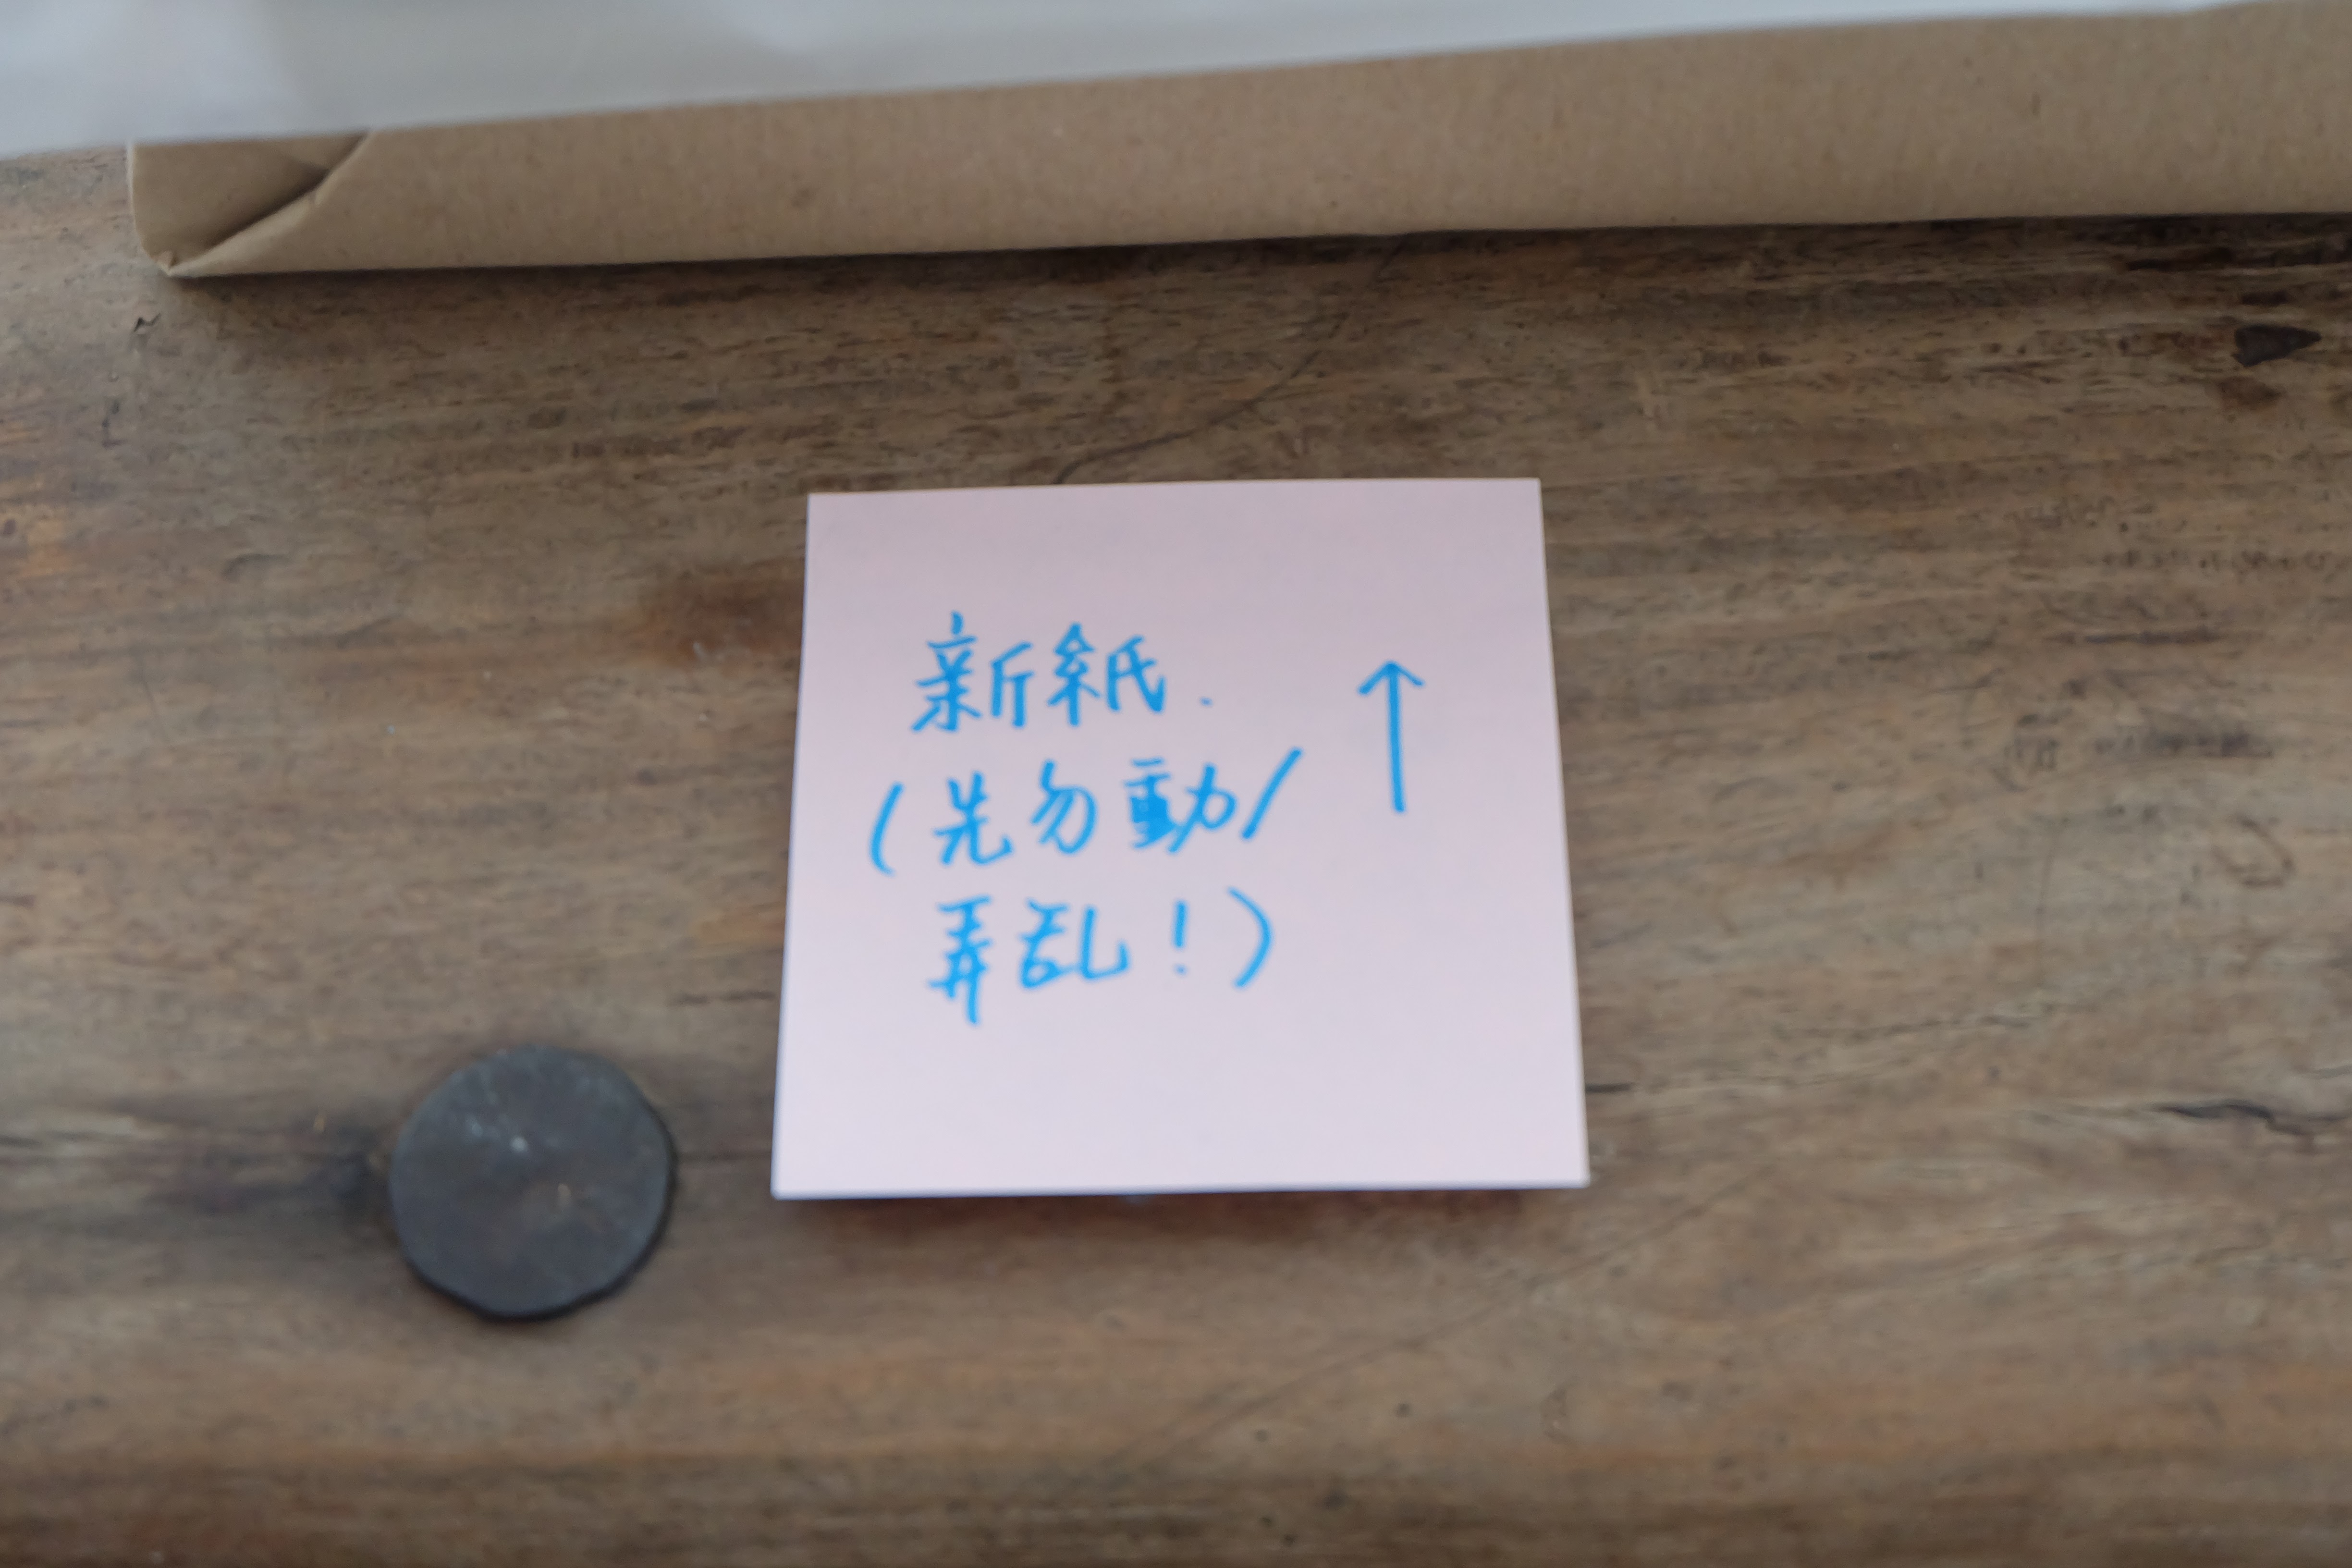 新紙. ↑
(先勿動/
弄乱!)